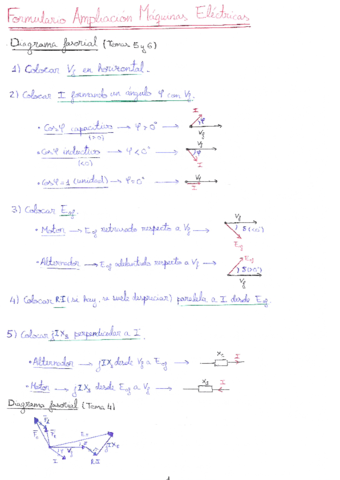 Formulario Ampliación Máquinas Eléctricas
Diagrama fasorial (Temas 5 y 6)
1) Colocar Vf en horizontal.
2) Colocar I formando un ángulo φ con Vf.
I
φ
Vf
• Cosφ capacitivo → φ > 0°
(>0)
• Cosφ inductivo → φ < 0°
(<0)
Vf
φ
I
• Cosφ = 1 (unidad) → φ = 0°
Vf
I
3) Colocar Eef
• Motor → Eef retrasado respecto a Vf →
Vf
δ (<0)
Eef
• Alternador → Eef adelantado respecto a Vf →
Eef
δ (>0)
Vf
4) Colocar RI (si hay, se suele despreciar) paralela a I desde Eef
5) Colocar jIXs perpendicular a I.
• Alternador → jIXs desde Vf a Eef →
Xs
I
• Motor → jIXs desde Eef a Vf →
Xs
I
Diagrama fasorial (Tema 4)
I
Vf
RI
jIXs
1